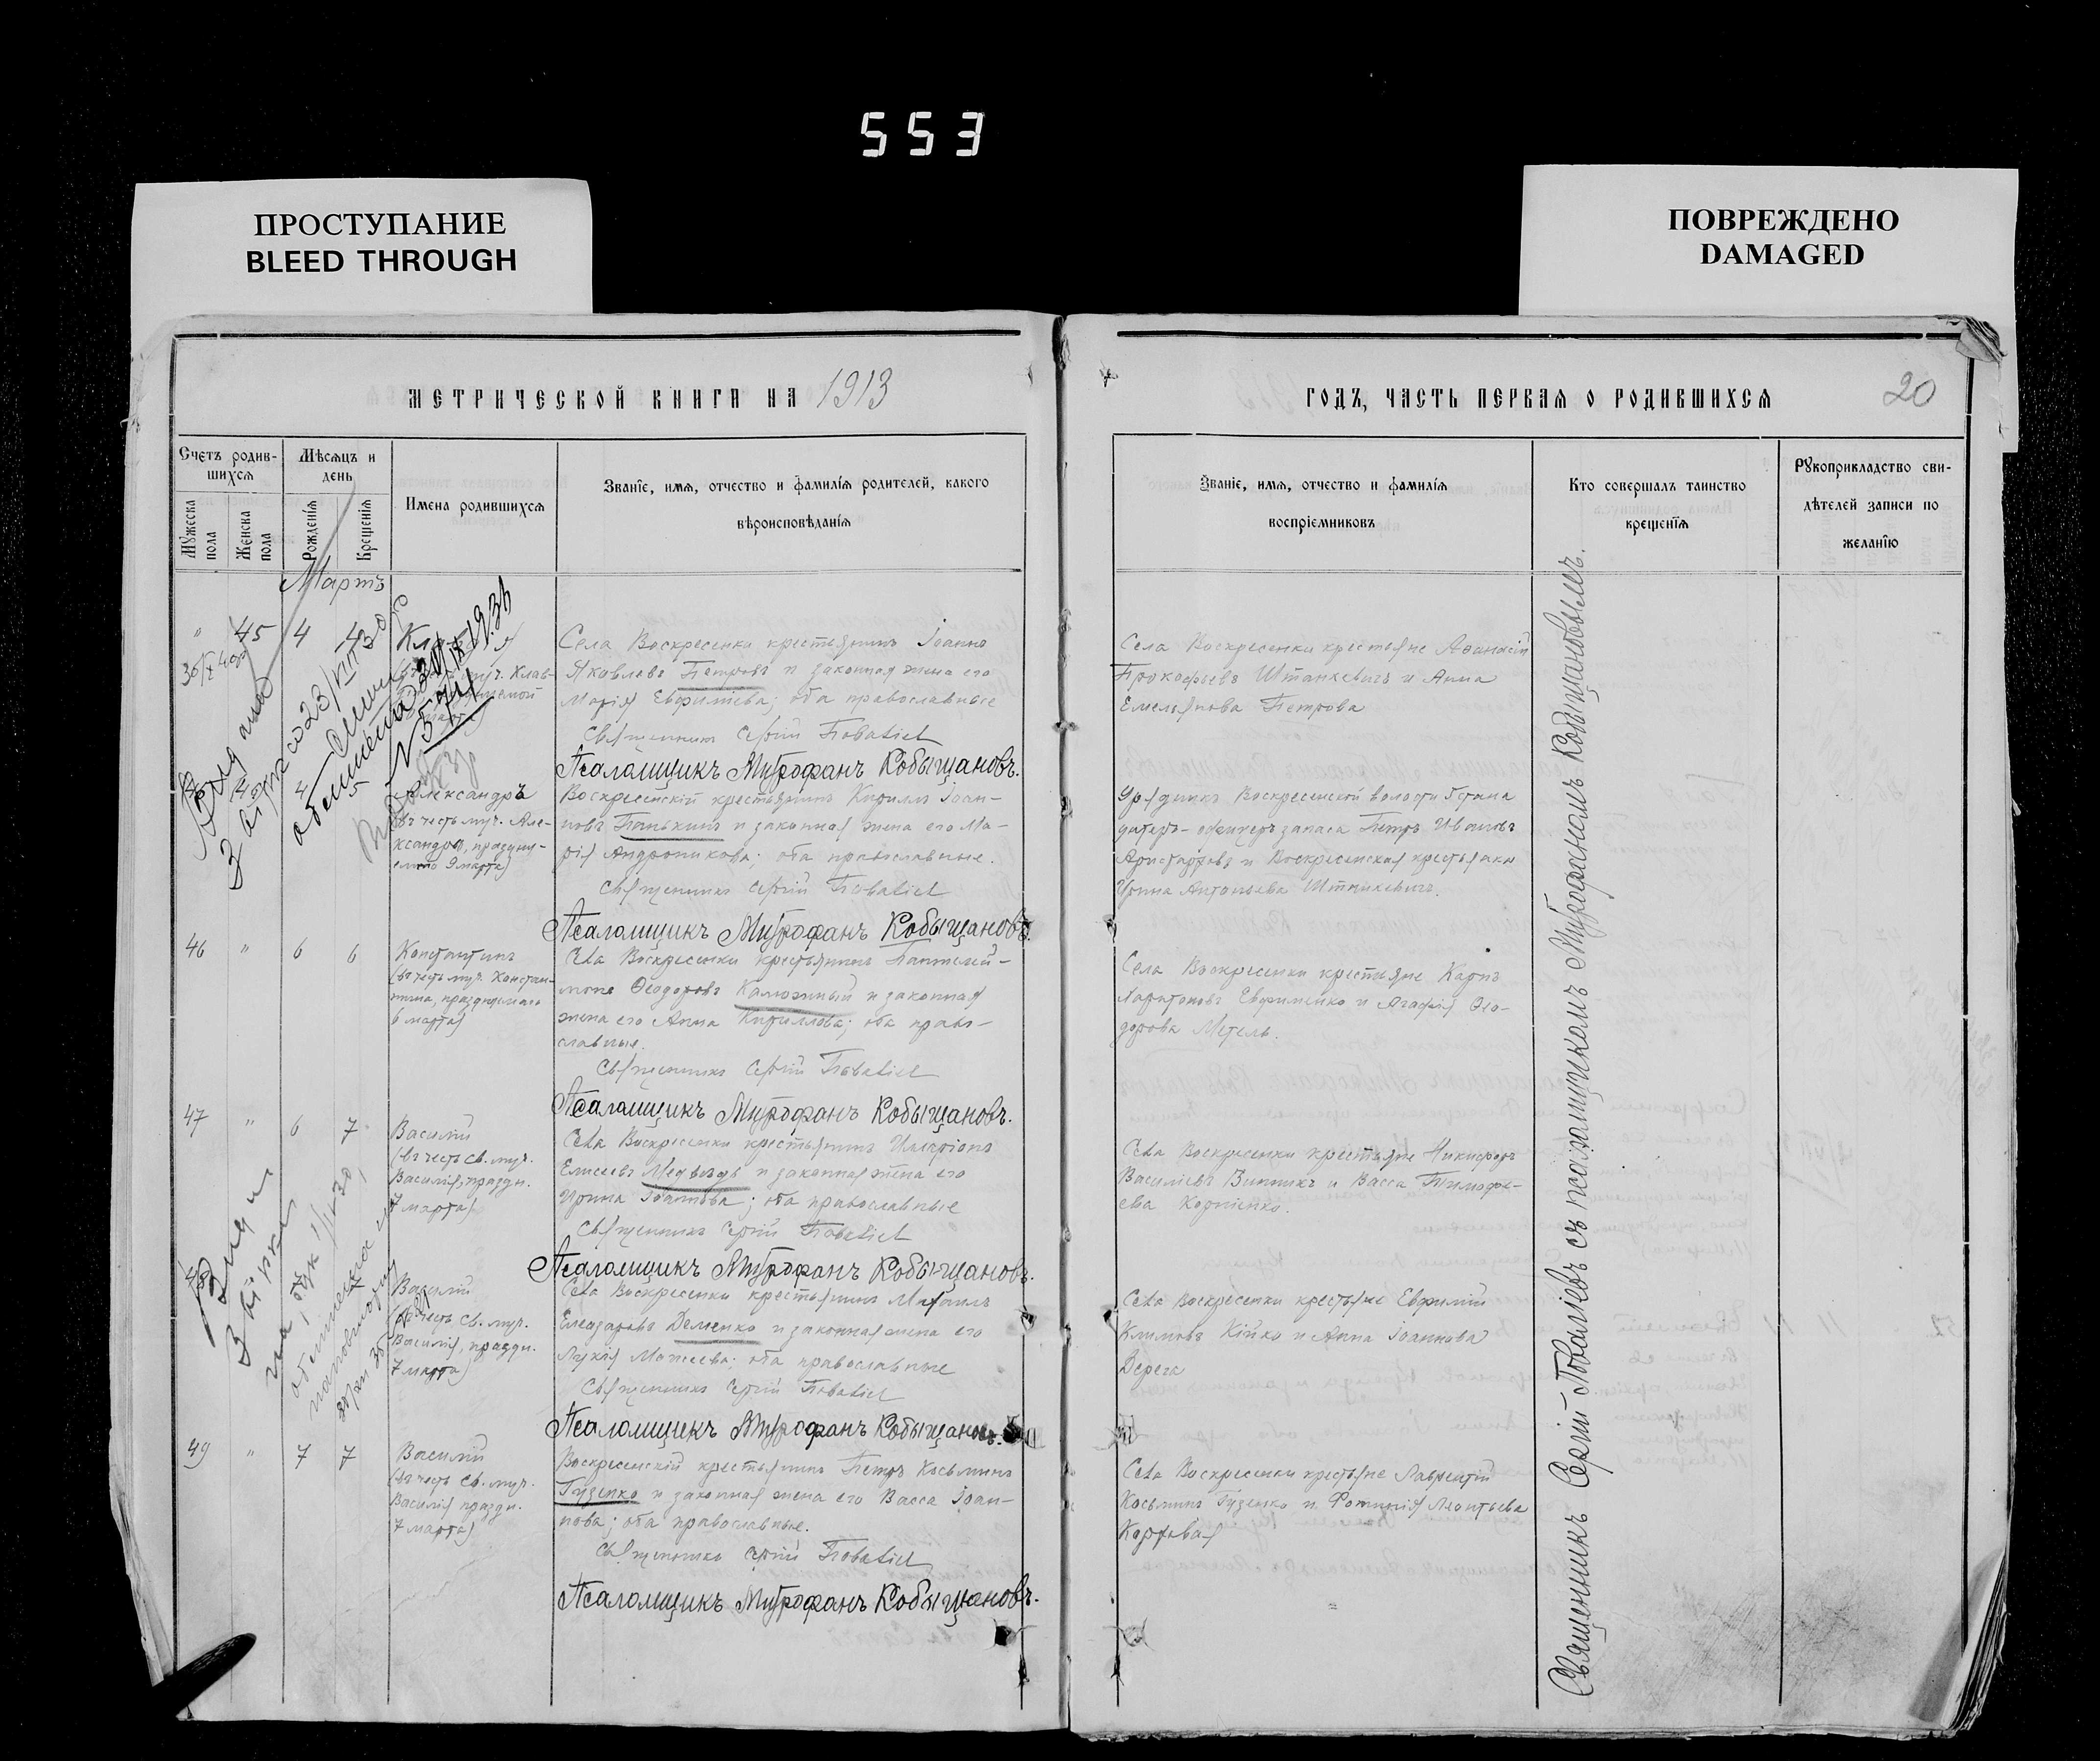 553
ПРОСТУПАНИЕ
BLEED THROUGH
ПОВРЕЖДЕНО
DAMAGED
МЕТРИЧЕСКОЙ КНИГИ НА 1913
ГОДЪ, ЧАСТЬ ПЕРВАЯ О РОДИВШИХСЯ
20
Счетъ родив-
шихся
Мужеска пола
Женска пола
Мѣсяцъ и
день
Рожденія
Крещенія
Имена родившихся
Званіе, имя, отчество и фамилія родителей, какого
вѣроисповѣданія
Званіе, имя, отчество и фамилія
воспріемниковъ
Кто совершалъ таинство
крещенія
Рукоприкладство сви-
дѣтелей записи по
желанію
Мартъ
" 45 4 4
Села Воскресенки крестьянинъ Іоаннъ
Яковлевъ Петровъ и законная жена его
Марія Евфимьева; оба православные
Священникъ Сергій Поваліевъ
Псаломщикъ Митрофанъ Кобыщановъ.
Села Воскресенки крестьяне Аѳанасій
Прокофьевъ Штанкевичъ и Анна
Емельянова Петрова
4 5
Александръ
(въ честь муч. Але-
ксандра, праздну-
емаго 9 марта)
Воскресенскій крестьянинъ Кириллъ Іоан-
новъ Панькинъ и законная жена его Ма-
рія Андроникова; оба православные.
Священникъ Сергій Поваліевъ
Псаломщикъ Митрофанъ Кобыщановъ.
Урядникъ Воскресенской волости
офицеръ запаса Петръ Ивановъ
и Воскресенская крестьянка
Ирина Антоньева Штанкевичъ.
46 " 6 6
Константинъ
(въ честь муч. Констан-
тина, празднуемаго
6 марта)
Села Воскресенки крестьянинъ Пантелей-
монъ Ѳеодоровъ Калюжный и законная
жена его Анна Кириллова; оба право-
славные.
Священникъ Сергій Поваліевъ
Псаломщикъ Митрофанъ Кобыщановъ.
Села Воскресенки крестьяне Карпъ
Харитоновъ Евфименко и Агафія Ѳео-
дорова Метель.
47 " 6 7
Василій
(въ честь св. муч.
Василія, праздн.
7 марта)
Села Воскресенки крестьянинъ Иларіонъ
Елисеевъ Медвѣдь и законная жена его
Ирина Іоаннова; оба православные
Священникъ Сергій Поваліевъ
Псаломщикъ Митрофанъ Кобыщановъ.
Села Воскресенки крестьяне Никифоръ
Василіевъ Винникъ и Васса Тимофе-
ева Корніенко.
48 7
Василій
(въ честь св. муч.
Василія, праздн.
7 марта)
Села Воскресенки крестьянинъ Михаилъ
Елеазаровъ Деменко и законная жена его
Лукія Моисеева; оба православные
Священникъ Сергій Поваліевъ
Псаломщикъ Митрофанъ Кобыщановъ.
Села Воскресенки крестьяне Евфимій
Климовъ Кійко и Анна Іоаннова
Дерега
49 " 7 7
Василій
(въ честь св. муч.
Василія праздн.
7 марта)
Воскресенскій крестьянинъ Петръ Косьминъ
Гузенко и законная жена его Васса Іоан-
нова; оба православные.
Священникъ Сергій Поваліевъ
Псаломщикъ Митрофанъ Кобыщановъ.
Села Воскресенки крестьяне Лаврентій
Косьминъ Гузенко и Фотинія Леонтьева
Священникъ Сергій Поваліевъ съ псаломщикомъ Митрофаномъ Кобыщановымъ.